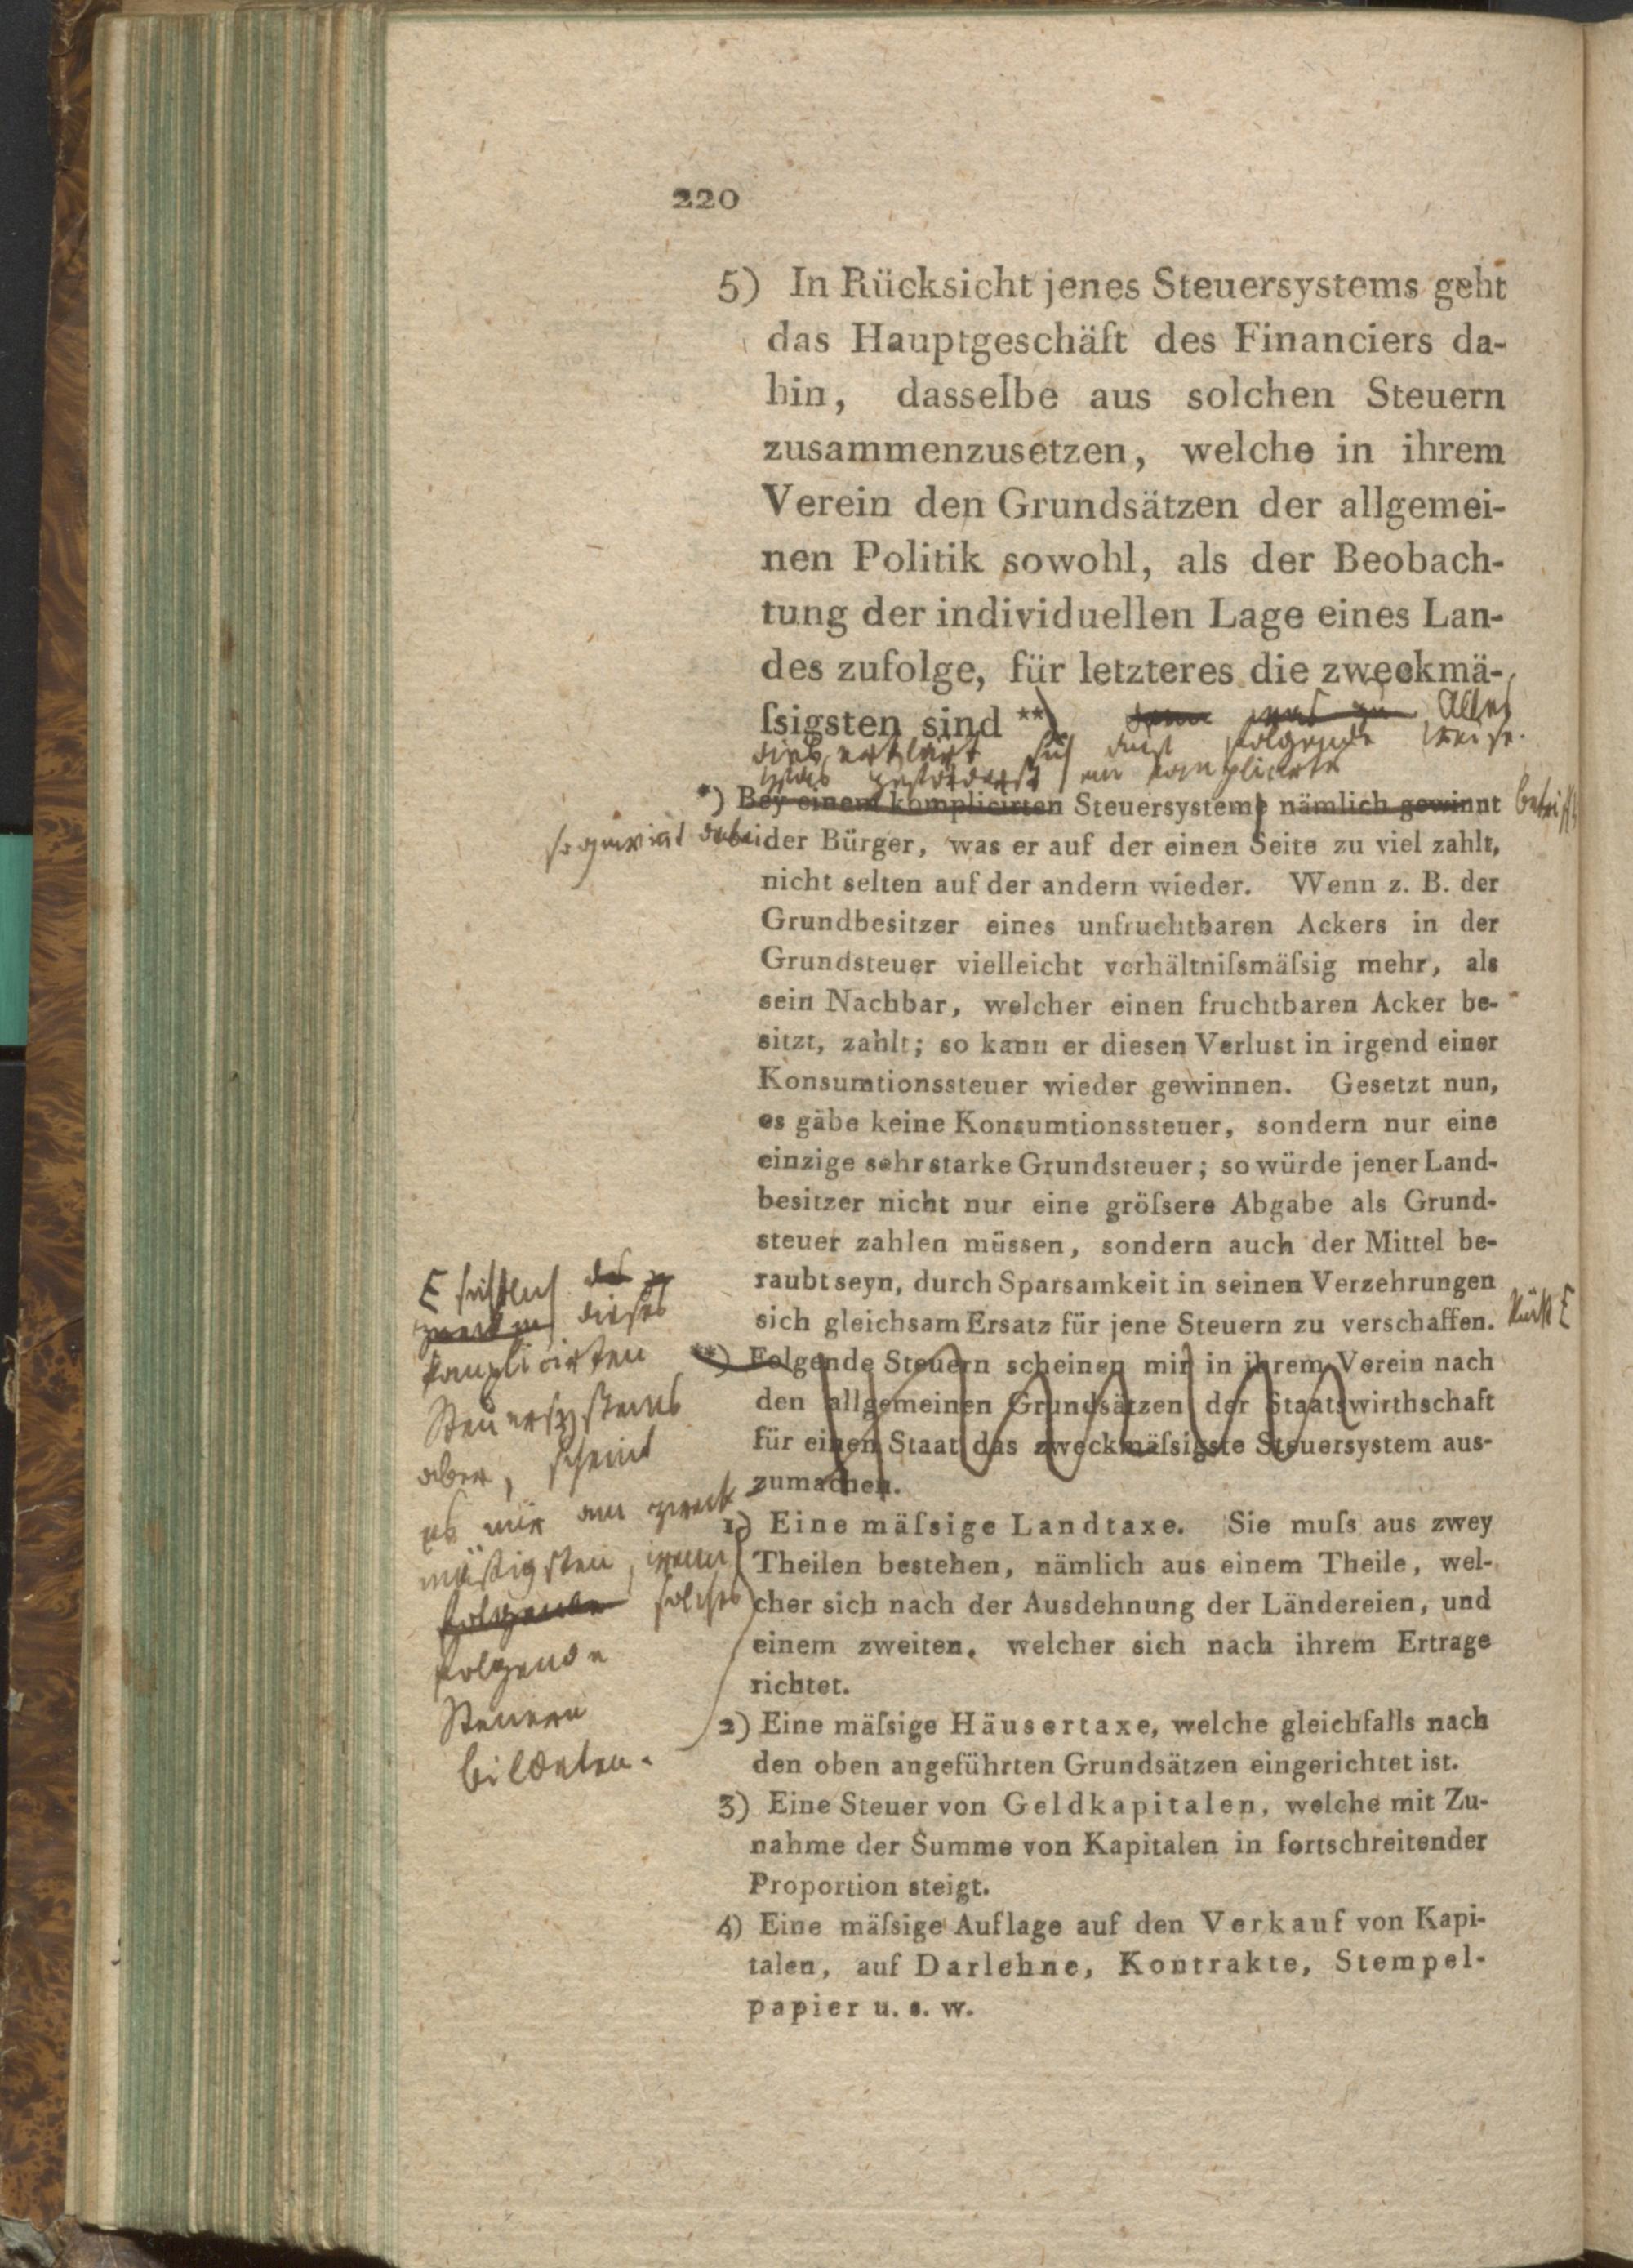 220
5) In Rücksicht jenes Steuersystems geht
das Hauptgeschäft des Financiers da-
hin, dasselbe aus solchen Steuern
zusammenzusetzen, welche in ihrem
Verein den Grundsätzen der allgemei-
nen Politik sowohl, als der Beobach-
tung der individuellen Lage eines Lan-
des zufolge, für letzteres die zweckmä-
ſsigsten sind **) Alles
dies erklärt sich auf folgende Weise.
Was zuförderst ein komplicirte
*) Bey einem komplicirten Steuersysteme nämlich gewinnt betrifft
so gewinnt dabei der Bürger, was er auf der einen Seite zu viel zahlt,
nicht selten auf der andern wieder. Wenn z. B. der
Grundbesitzer eines unfruchtbaren Ackers in der
Grundsteuer vielleicht verhältniſsmäſsig mehr, als
sein Nachbar, welcher einen fruchtbaren Acker be-
sitzt, zahlt; so kann er diesen Verlust in irgend einer
Konsumtionssteuer wieder gewinnen. Gesetzt nun,
es gäbe keine Konsumtionssteuer, sondern nur eine
einzige sehr starke Grundsteuer; so würde jener Land-
besitzer nicht nur eine gröſsere Abgabe als Grund-
steuer zahlen müssen, sondern auch der Mittel be-
raubt seyn, durch Sparsamkeit in seinen Verzehrungen
sich gleichsam Ersatz für jene Steuern zu verschaffen.
**) Folgende Steuern scheinen mir in ihrem Verein nach
den allgemeinen Grundsätzen der Staatswirthschaft
für einen Staat das zweckmäſsigste Steuersystem aus-
zumachen.
dieses
komplicirten
Steuersystems
aber, scheint
es mir am zweck
mäßigsten, wenn
folgende solches
folgende
Steuern
bildeten.
1) Eine mäſsige Landtaxe. Sie muſs aus zwey
Theilen bestehen, nämlich aus einem Theile, wel-
cher sich nach der Ausdehnung der Ländereien, und
einem zweiten, welcher sich nach ihrem Ertrage
richtet.
2) Eine mäſsige Häusertaxe, welche gleichfalls nach
den oben angeführten Grundsätzen eingerichtet ist.
3) Eine Steuer von Geldkapitalen, welche mit Zu-
nahme der Summe von Kapitalen in fortschreitender
Proportion steigt.
4) Eine mäſsige Auflage auf den Verkauf von Kapi-
talen, auf Darlehne, Kontrakte, Stempel-
papier u. s. w.